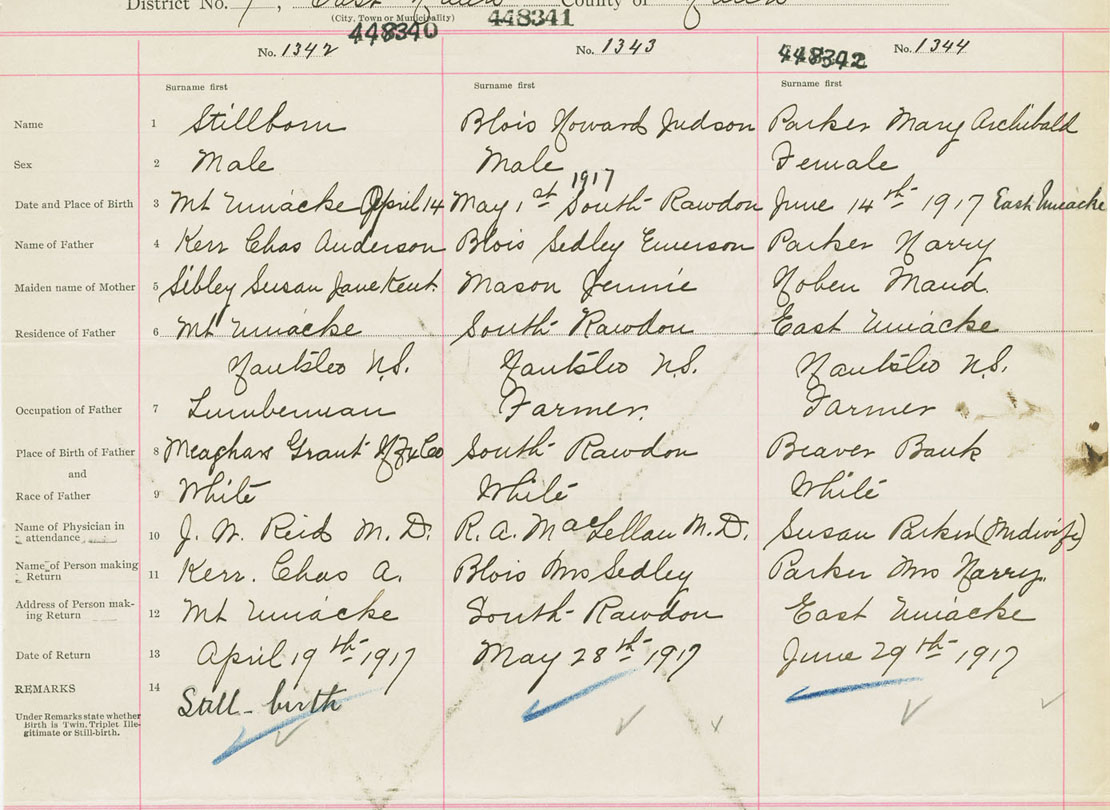 District No. 7, East Hants County of Hants
(City, Town or Municipality)
448340 448341 448342
No. 1342 No. 1343 No. 1344
Surname first Surname first Surname first
Name 1 Stillborn Blois Howard Judson Parker Mary Archibald
Sex 2 Male Male Female
1917
Date and Place of Birth 3 Mt Uniacke April 14 May 1st South Rawdon June 14th 1917 East Uniacke
Name of Father 4 Kerr Chas Anderson Blois Sedley Emerson Parker Harry
Maiden name of Mother 5 Sibley Susan Jane Kent Mason Jennie Maud
Residence of Father 6 Mt Uniacke South Rawdon East Uniacke
Hants Co N.S. Hants Co N.S. Hants Co N.S.
Occupation of Father 7 Lumberman Farmer. Farmer
Place of Birth of Father 8 Meaghars Grant Hfx Co South Rawdon Beaver Bank
and
Race of Father 9 White White White
Name of Physician in
attendance 10 J. W. Reid M.D. R. A. MacLellan M.D. Susan Parker (Midwife)
Name of Person making
Return 11 Kerr. Chas A. Blois Mrs Sedley Parker Mrs Harry.
Address of Person mak-
ing Return 12 Mt Uniacke South Rawdon East Uniacke
Date of Return 13 April 19th 1917 May 28th 1917 June 29th 1917
REMARKS 14 Still-birth
Under Remarks state whether
Birth is Twin, Triplet Ille-
gitimate or Still-birth.